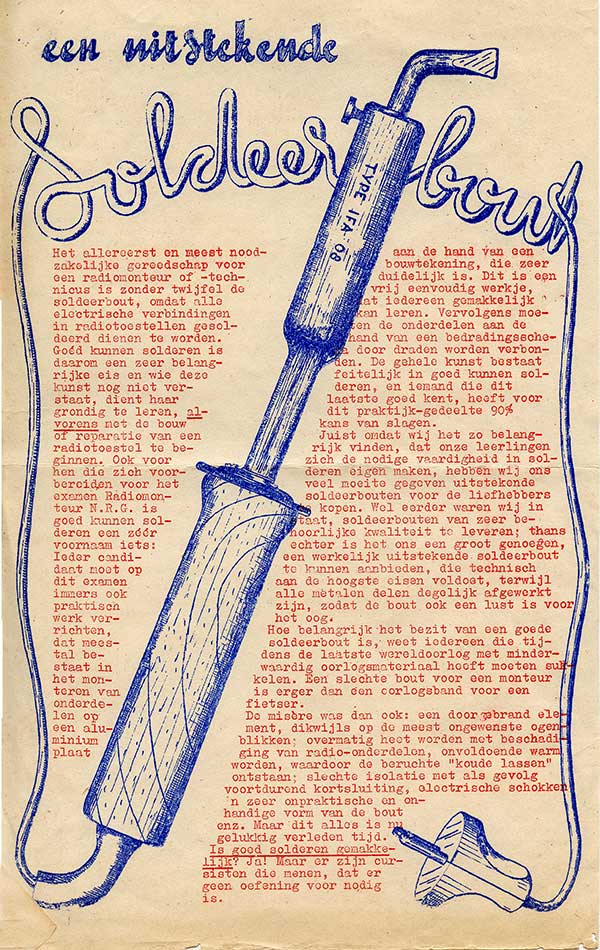 een uitstekende
Soldeerbout
TYPE IFA 08
Het allereerst en meest nood-
zakelijke gereedschap voor
een radiomonteur of -tech-
nicus is zonder twijfel de
soldeerbout, omdat alle
electrische verbindingen
in radiotoestellen gesol-
deerd dienen te worden.
Goéd kunnen solderen is
daarom een zeer belang-
rijke eis en wie deze
kunst nog niet ver-
staat, dient haar
grondig te leren, al-
vorens met de bouw
of reparatie van een
radiotoestel te be-
ginnen. Ook voor
hen die zich voor-
bereiden voor het
examen Radiomon-
teur N.R.G. is
goed kunnen sol-
deren een zéér
voornaam iets:
Ieder candi-
daat moet op
dit examen
immers ook
praktisch
werk ver-
richten,
dat mees-
tal be-
staat in
het mon-
teren van
onderde-
len op
een alu-
minium
plaat
aan de hand van een
bouwtekening, die zeer
duidelijk is. Dit is een
vrij eenvoudig werkje,
dat iedereen gemakkelijk
kan leren. Vervolgens moe-
ten de onderdelen aan de
hand van een bedradingssche-
a door draden worden verbon-
den. De gehele kunst bestaat
feitelijk in goed kunnen sol-
deren, en iemand die dit
laatste goed kent, heeft voor
dit praktijk-gedeelte 90%
kans van slagen.
Juist omdat wij het zo belang-
rijk vinden, dat onze leerlingen
zich de nodige vaardigheid in sol-
deren eigen maken, hebben wij ons
veel moeite gegeven uitstekende
soldeerbouten voor de liefhebbers
te kopen. Wel eerder waren wij in
staat, soldeerbouten van zeer be-
hoorlijke kwaliteit te leveren; thans
echter is het ons een groot genoegen,
een werkelijk uitstekende soldeerbout
te kunnen aanbieden, die technisch
aan de hoogste eisen voldoet, terwijl
alle metalen delen degelijk afgewerkt
zijn, zodat de bout ook een lust is voor
het oog.
Hoe belangrijk het bezit van een goede
soldeerbout is, weet iedereen die tij-
dens de laatste wereldoorlog met minder-
waardig oorlogsmateriaal heeft moeten suk-
kelen. Een slechte bout voor een monteur
is erger dan een oorlogsband voor een
fietser.
De misère was dan ook: een doorgebrand ele-
ment, dikwijls op de meest ongewenste ogen-
blikken; overmatig heet worden met beschadi-
ging van radio-onderdelen, onvoldoende warm
worden, waardoor de beruchte "koude lassen"
ontstaan; slechte isolatie met als gevolg
voortdurend kortsluiting, electrische schokken
'n zeer onpraktische en on-
handige vorm van de bout
enz. Maar dit alles is nu
gelukkig verleden tijd.
Is goed solderen gemakke-
lijk? Ja! Maar er zijn cur-
sisten die menen, dat er
geen oefening voor nodig
is.